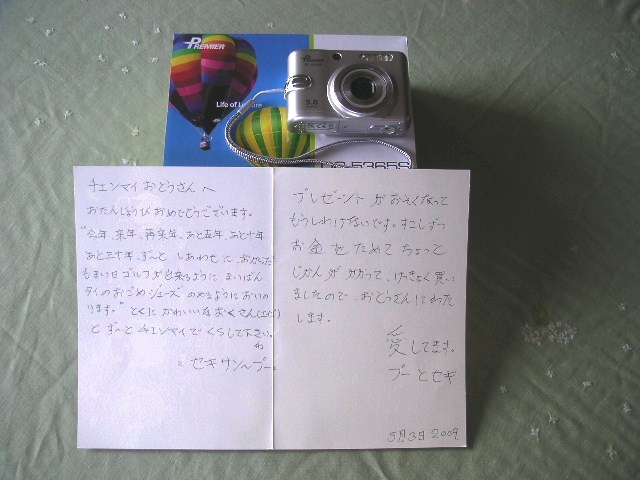 PREMIER
Life of Leisure
5.0
DS-5365S
チェンマイ おとうさん へ
おたんじょうび おめでとうございます。
"今年、来年、再来年、あと五年、あと十年
あと三十年、ずーと しあわせ に おからだ
もまい日 ゴルフ が出来るように まいばん
タイのおこめジュース のめるように おいの
ります。" とくに かわいいな おくさん
と ずーと チェンマイで くらして下さい。
ね
セキサン〜プー
プレゼント が おそくなって
もうしわけないです。すこしずつ
お金 を ためて ちょっと
じかん が かかって、けっきょく 買い
ましたので、おとうさんにわた
します。
愛してます。
プーとセキ
5月3日 2009